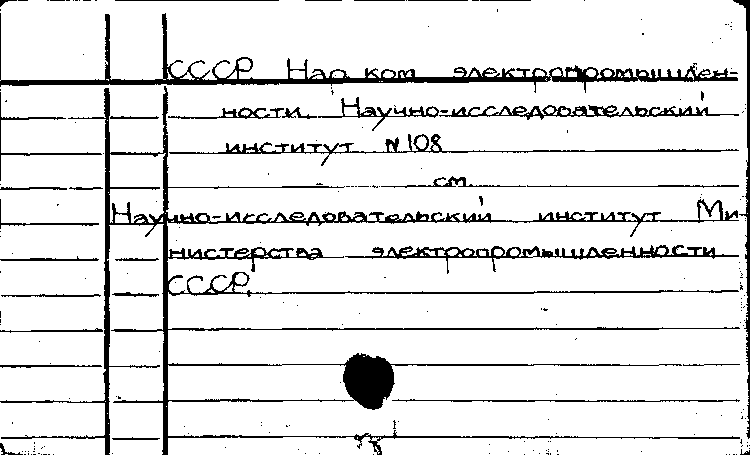 СССР Нар. ком. электропромышлен-
ности. Научно-исследовательский
институт № 108
см.
Научно-исследовательский институт Ми-
нистерства электропромышленности
СССР.